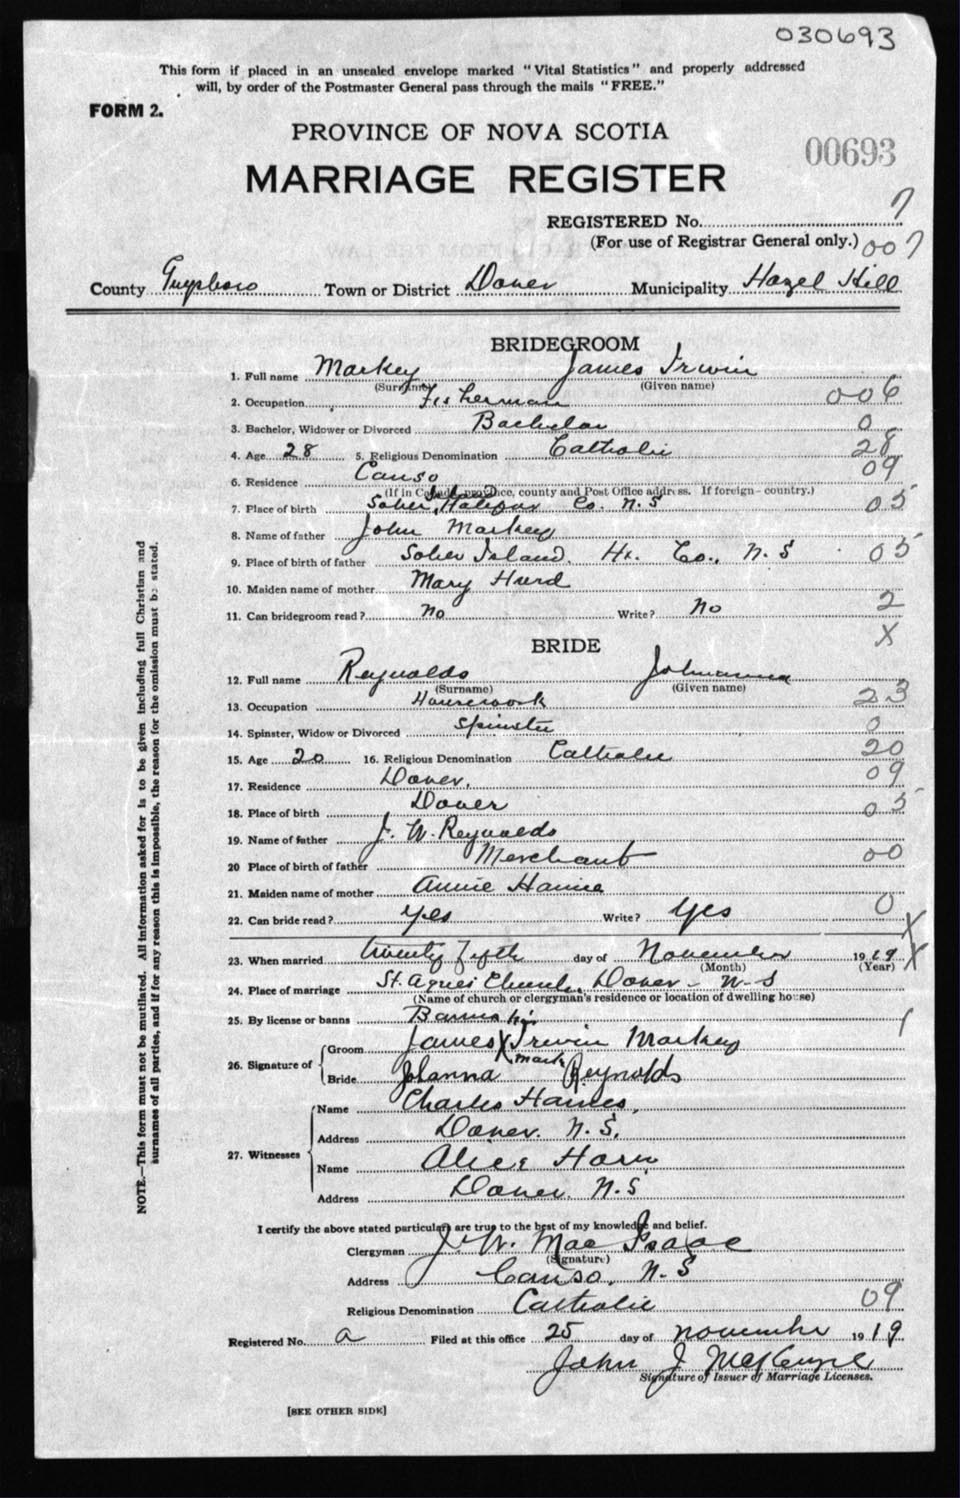 030693
This form if placed in an unsealed envelope marked "Vital Statistics" and properly addressed
will, by order of the Postmaster General pass through the mails "FREE."
FORM 2.
PROVINCE OF NOVA SCOTIA
00693
MARRIAGE REGISTER
REGISTERED No. 7
(For use of Registrar General only.) 007
County Guysboro Town or District Dover Municipality Hazel Hill
BRIDEGROOM
1. Full name Markey James Irwin
(Surname) (Given name)
2. Occupation Fisherman 006
3. Bachelor, Widower or Divorced Bachelor 0
4. Age 28 5. Religious Denomination Catholic 28
6. Residence Canso 09
(If in Canada, province, county and Post Office address. If foreign-country.)
7. Place of birth Sober Isld Halifax Co. N.S 05
8. Name of father John Markey
9. Place of birth of father Sober Island, Hx. Co., N.S 05
10. Maiden name of mother Mary Hurd
11. Can bridegroom read? No Write? No 2
X
BRIDE
12. Full name Reynolds Johanna
(Surname) (Given name)
13. Occupation Housework 23
14. Spinster, Widow or Divorced Spinster 0
15. Age 20 16. Religious Denomination Catholic 20
17. Residence Dover, 09
18. Place of birth Dover 05
19. Name of father J. W. Reynolds
20 Place of birth of father Merchant 00
21. Maiden name of mother Annie
22. Can bride read? yes Write? yes 0
X
23. When married twenty fifth day of November 1919 X
(Month) (Year)
24. Place of marriage St. Agnes Church, Dover - N-S
(Name of church or clergyman's residence or location of dwelling house)
25. By license or banns Banns 1
26. Signature of Groom James his X mark Irwin Markey
Bride Johanna Reynolds
27. Witnesses Name Charles Haines,
Address Dover. N.S.
Name Alice Horn
Address Dover. N.S
I certify the above stated particulars are true to the best of my knowledge and belief.
Clergyman J. W. Mac Isaac
(Signature)
Address Canso, N.S
Religious Denomination Catholic 09
Registered No. a Filed at this office 25 day of November 1919
John J McKenzie
Signature of Issuer of Marriage Licenses.
[SEE OTHER SIDE]
NOTE.—This form must not be mutilated. All information asked for is to be given including full Christian and
surnames of all parties, and if for any reason this is impossible, the reason for the omission must be stated.